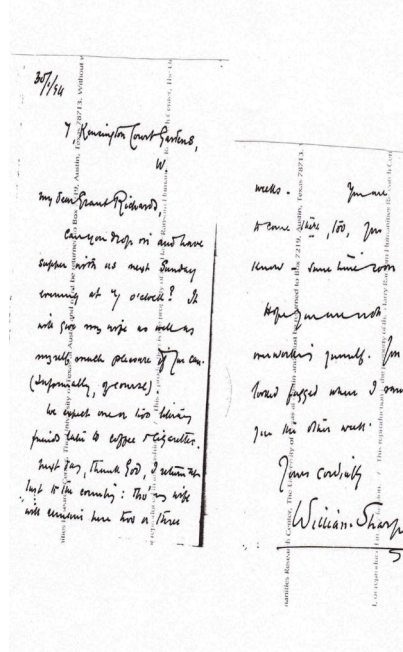 30/1/94
7, Kensington Court Gardens,
W.
My dear Grant Richards,
Can you drop in and have
supper with us next Sunday
evening at 7 o'clock? It
will give my wife as well as
myself much pleasure if you can.
(Informally, of course)
We expect one or two literary
friends later to coffee & cigarettes.
Next day, thank God, I return at
last to the country: tho' my wife
will remain here two or three
weeks. You are
to come there, too, you
know – some time soon
Hope you are not
overworking yourself. You
looked fagged when I saw
you the other week.
Yours cordially
William Sharp